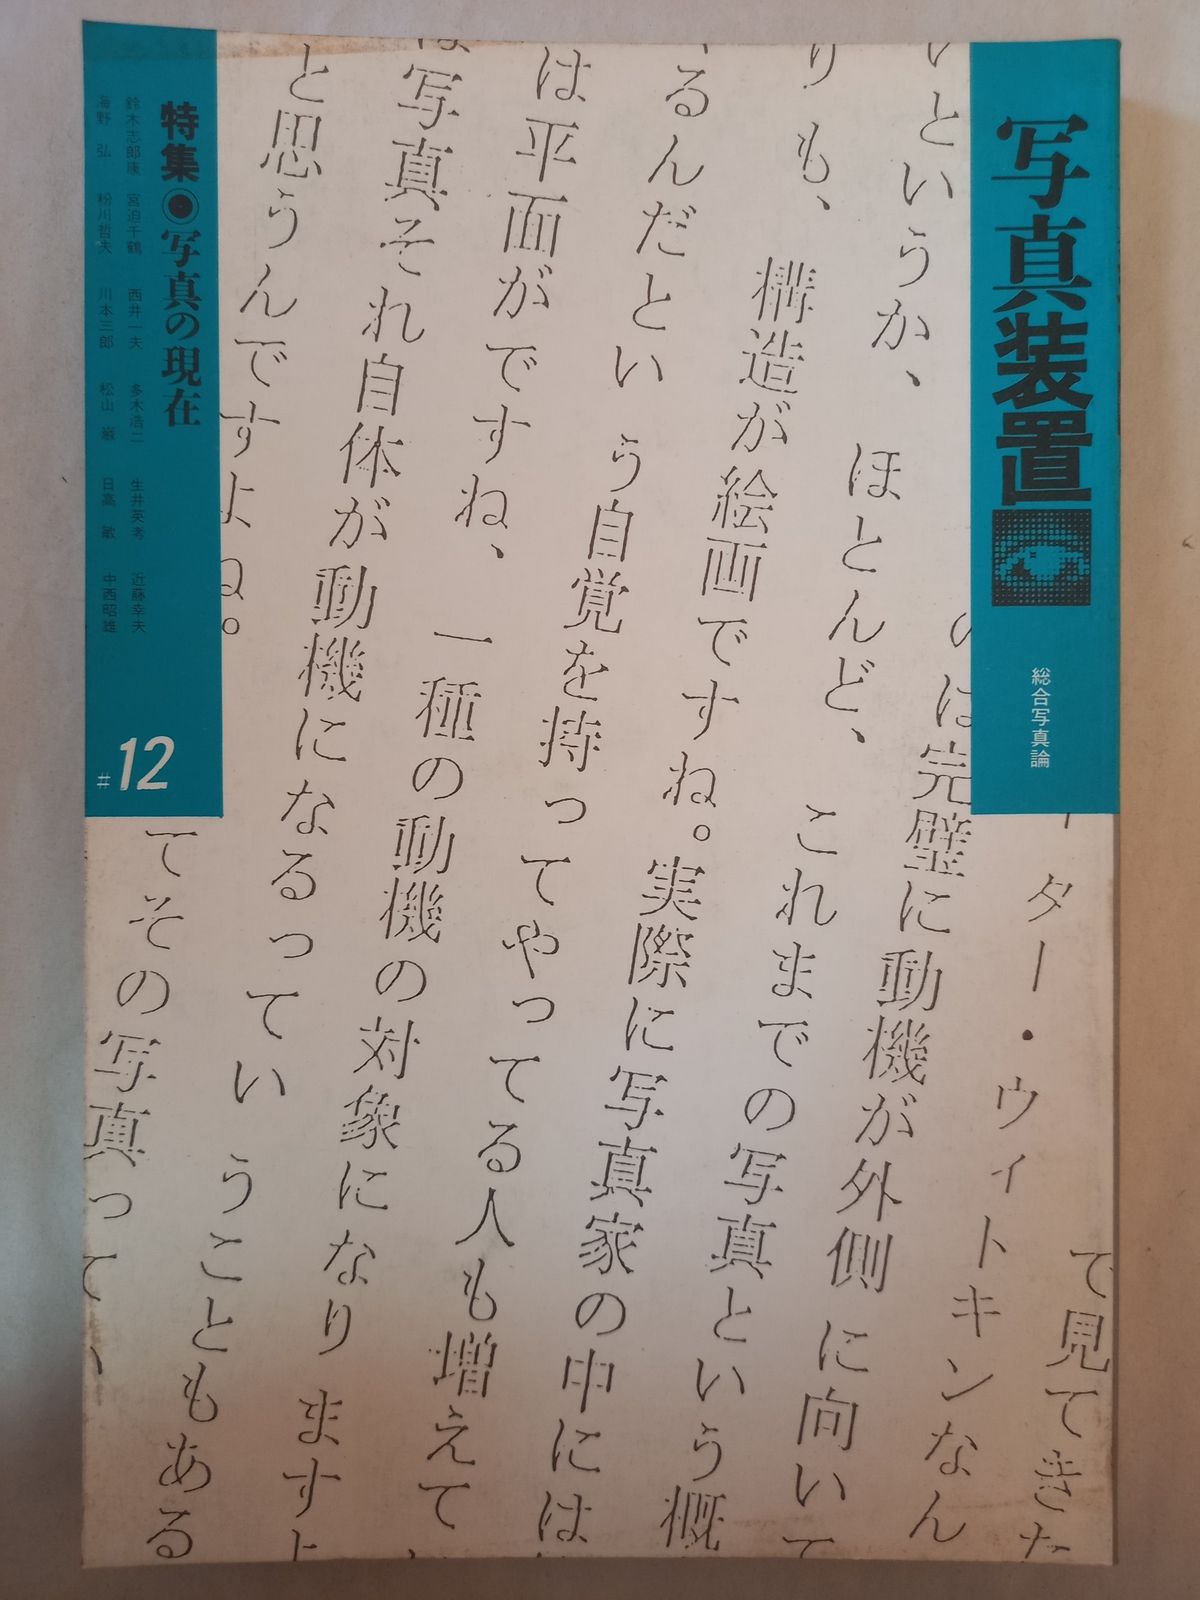 写真装置
総合写真論
で見てきた
ーター・ウィトキンなん
のは完璧に動機が外側に向いて
いというか、ほとんど、これまでの写真という概
りも、構造が絵画ですね。実際に写真家の中には
るんだという自覚を持ってやってる人も増えて
は平面がですね、一種の動機の対象になります
は写真それ自体が動機になるっていうこともある
と思うんですよね。
てその写真ってい
特集●写真の現在
鈴木志郎康 宮迫千鶴 西井一夫 多木浩二 生井英考 近藤幸夫
海野弘 粉川哲夫 川本三郎 松山巖 日高敏 中西昭雄
#12